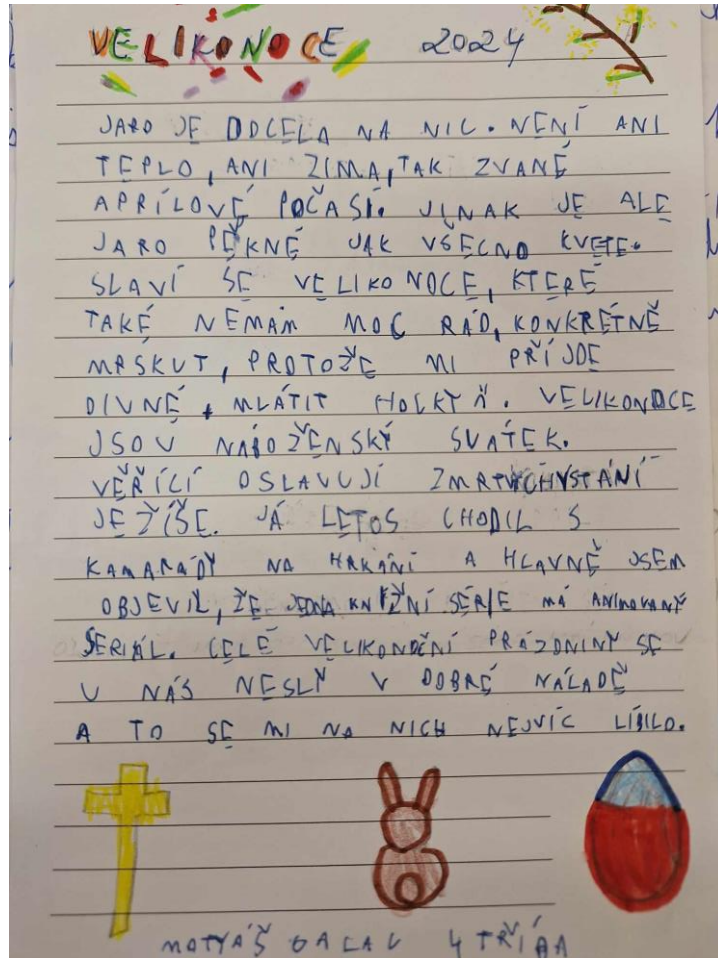 VELIKONOCE 2024
JARO JE DOCELA NA NIC. NENÍ ANI
TEPLO, ANI ZIMA, TAK ZVANÉ
APRÍLOVÉ POČASÍ. JINAK JE ALE
JARO PĚKNÉ JAK VŠECNO KVETE.
SLAVÍ SE VELIKONOCE, KTERÉ
TAKÉ NEMÁM MOC RÁD, KONKRÉTNĚ
MRSKUT, PROTOŽE MI PŘÍJDE
DIVNÉ MLÁTIT HOLKY. VELIKONOCE
JSOU NÁBOŽENSKÝ SVÁTEK.
VĚŘÍCÍ OSLAVUJÍ ZMRTVÝCHVSTÁNÍ
JEŽÍŠE. JÁ LETOS CHODIL S
KAMARÁDY NA HRKÁNÍ A HLAVNĚ JSEM
OBJEVIL, ŽE JEDNA KNIŽNÍ SÉRIE MÁ ANIMOVANÝ
SERIÁL. CELÉ VELIKONOČNÍ PRÁZDNINY SE
U NÁS NESLY V DOBRÉ NÁLADĚ
A TO SE MI NA NICH NEJVÍC LÍBILO.
MATYÁŠ 4 TŘÍDA